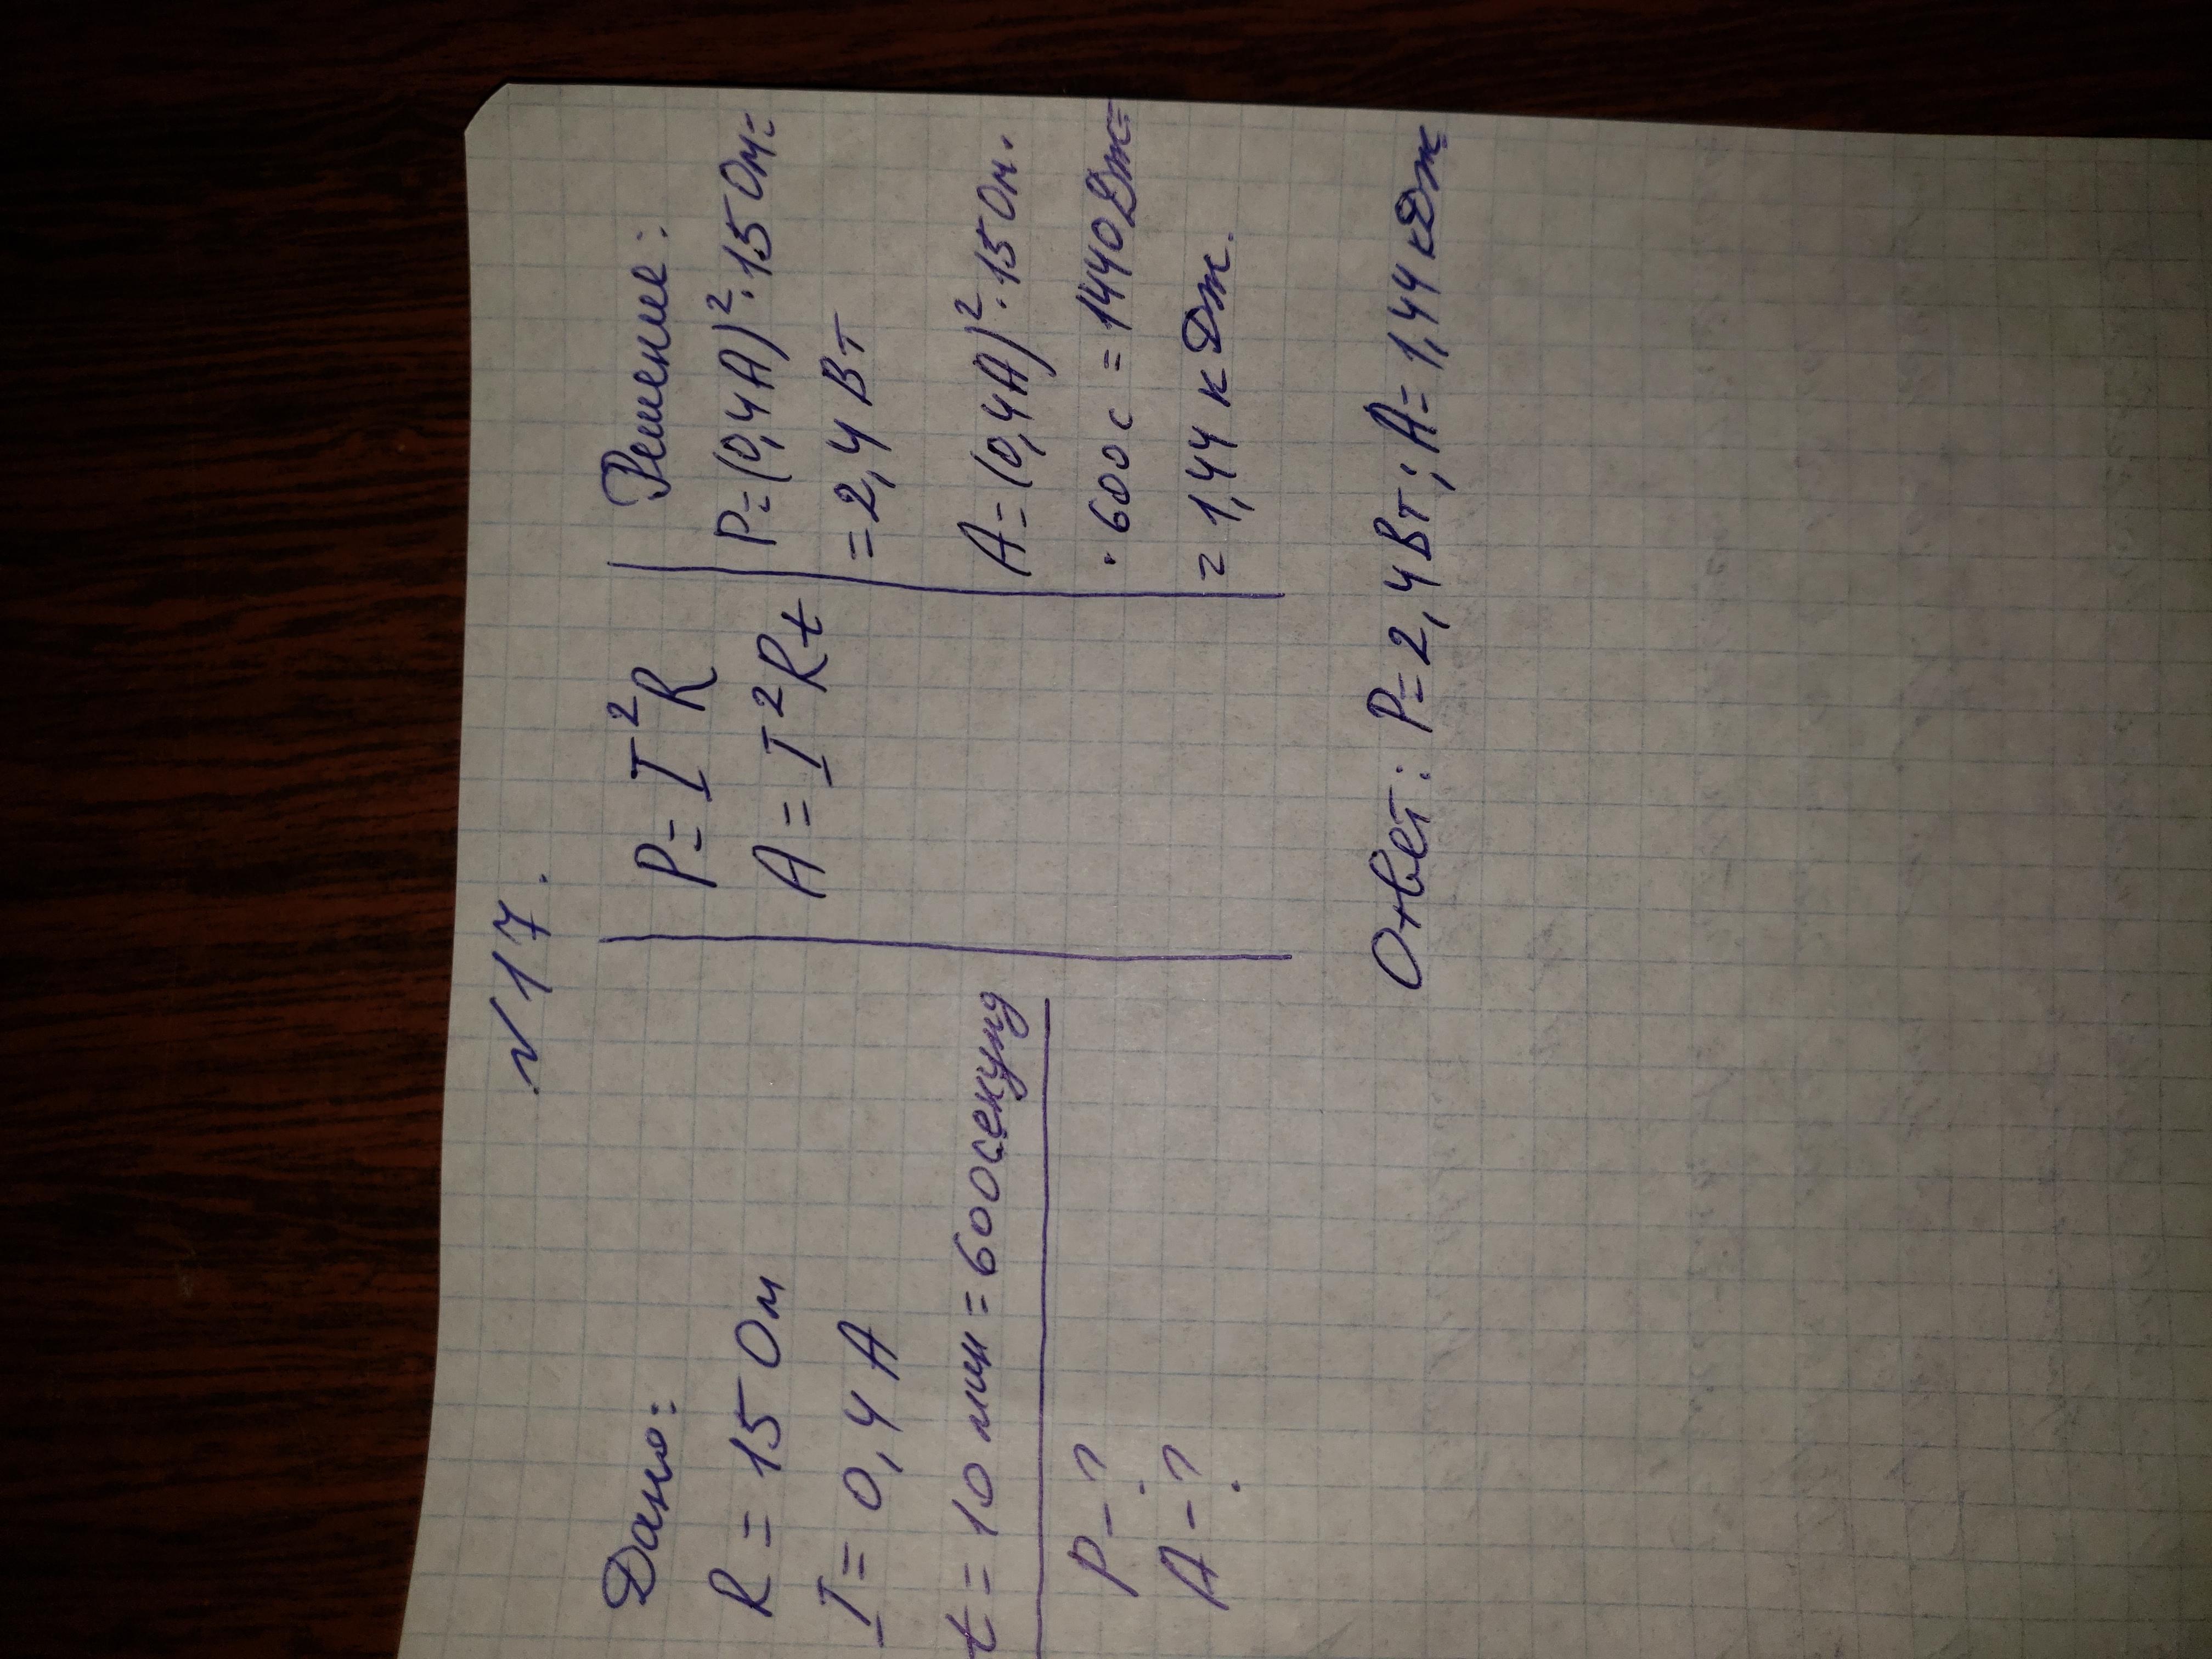 №17.
Дано:
R = 15 Ом
I = 0,4 А
t = 10 мин = 600секунд
P - ?
A - ?
P = I²R
A = I²Rt
Решение:
P=(0,4А)²·15Ом=
= 2,4 Вт
A = (0,4А)²·15Ом·
·600с = 1440Дж=
= 1,44 кДж.
Ответ: P=2,4Вт; A=1,44кДж